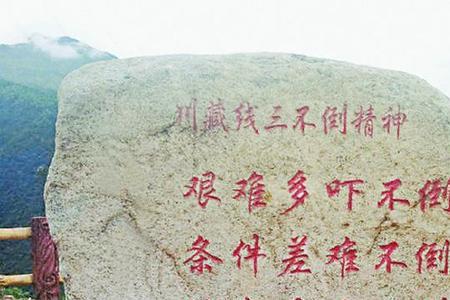 川藏线三不倒精神
艰难多吓不倒
条件差难不倒